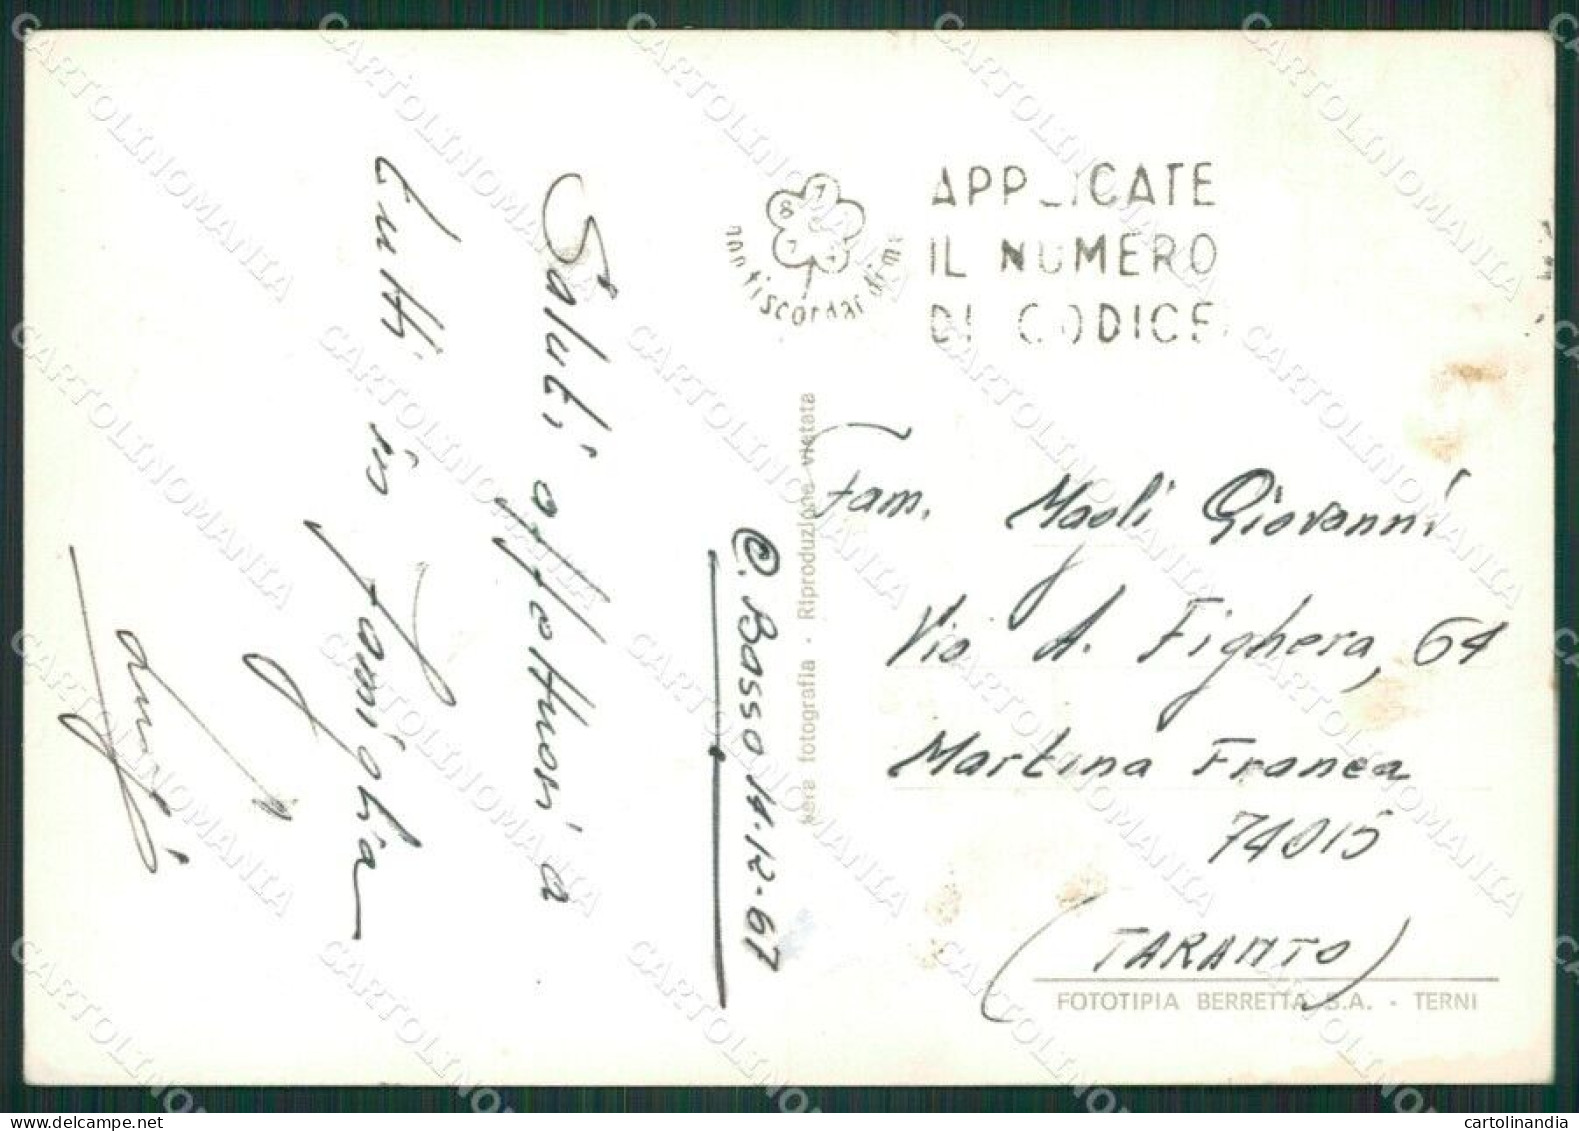 Saluti affettuosi a
tutti in famiglia
Luigi
C. Basso 14-12-67
Vera fotografia · Riproduzione vietata
nontiscordardime
APPLICATE
IL NUMERO
DI CODICE
Fam. Maoli Giovanni
Via A. Fighera, 64
Martina Franca
74015
(TARANTO)
FOTOTIPIA BERRETTA S.A. - TERNI
CARTOLINOMANIA
cartolinandia